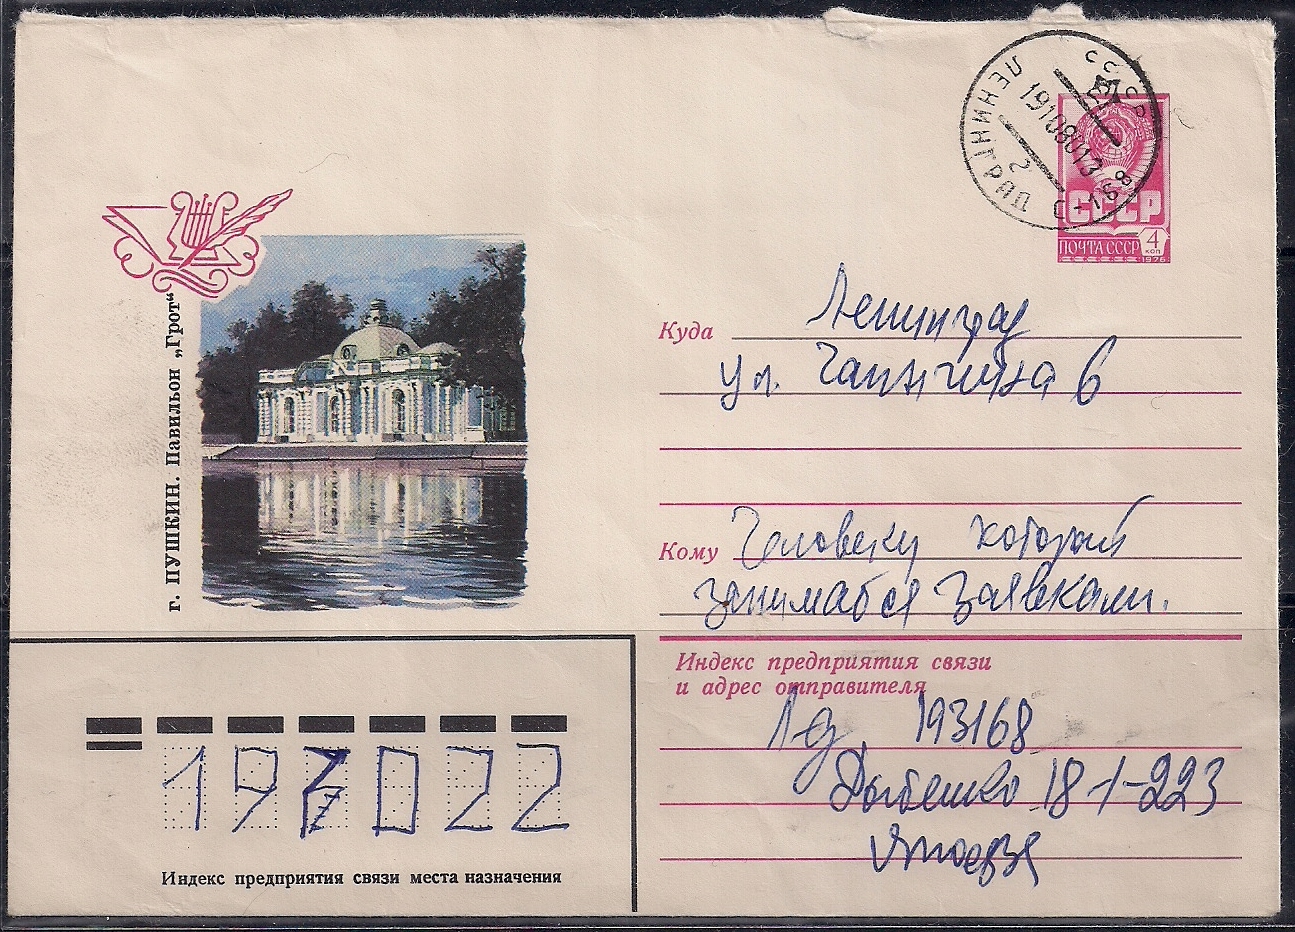 ЛЕНИНГРАД 2 СССР
19108013
С-168
СССР
ПОЧТА СССР 4 КОП
1976
г. ПУШКИН. Павильон „Грот“
Куда Ленинград
ул. Чапыгина 6
Кому Человеку который
занимается заявками.
Индекс предприятия связи
и адрес отправителя
Лд 193168
Дыбенко 18-1-223
197022
Индекс предприятия связи места назначения